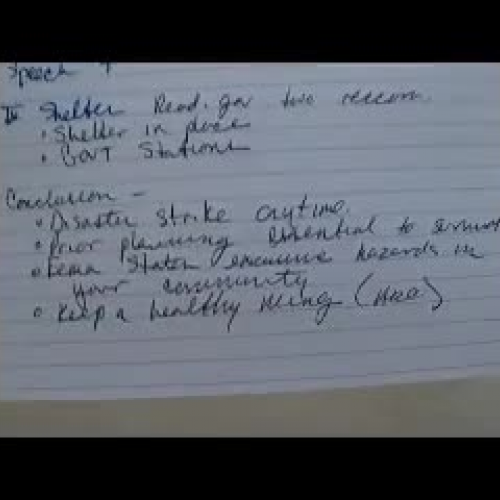 Speech
IV Shelter Read.gov two reccom.
• Shelter in place
• Govt Stations
Conclusion -
• Disaster strike anytime.
• Prior planning essential to
• Fema States hazards in
your community
• Keep a healthy